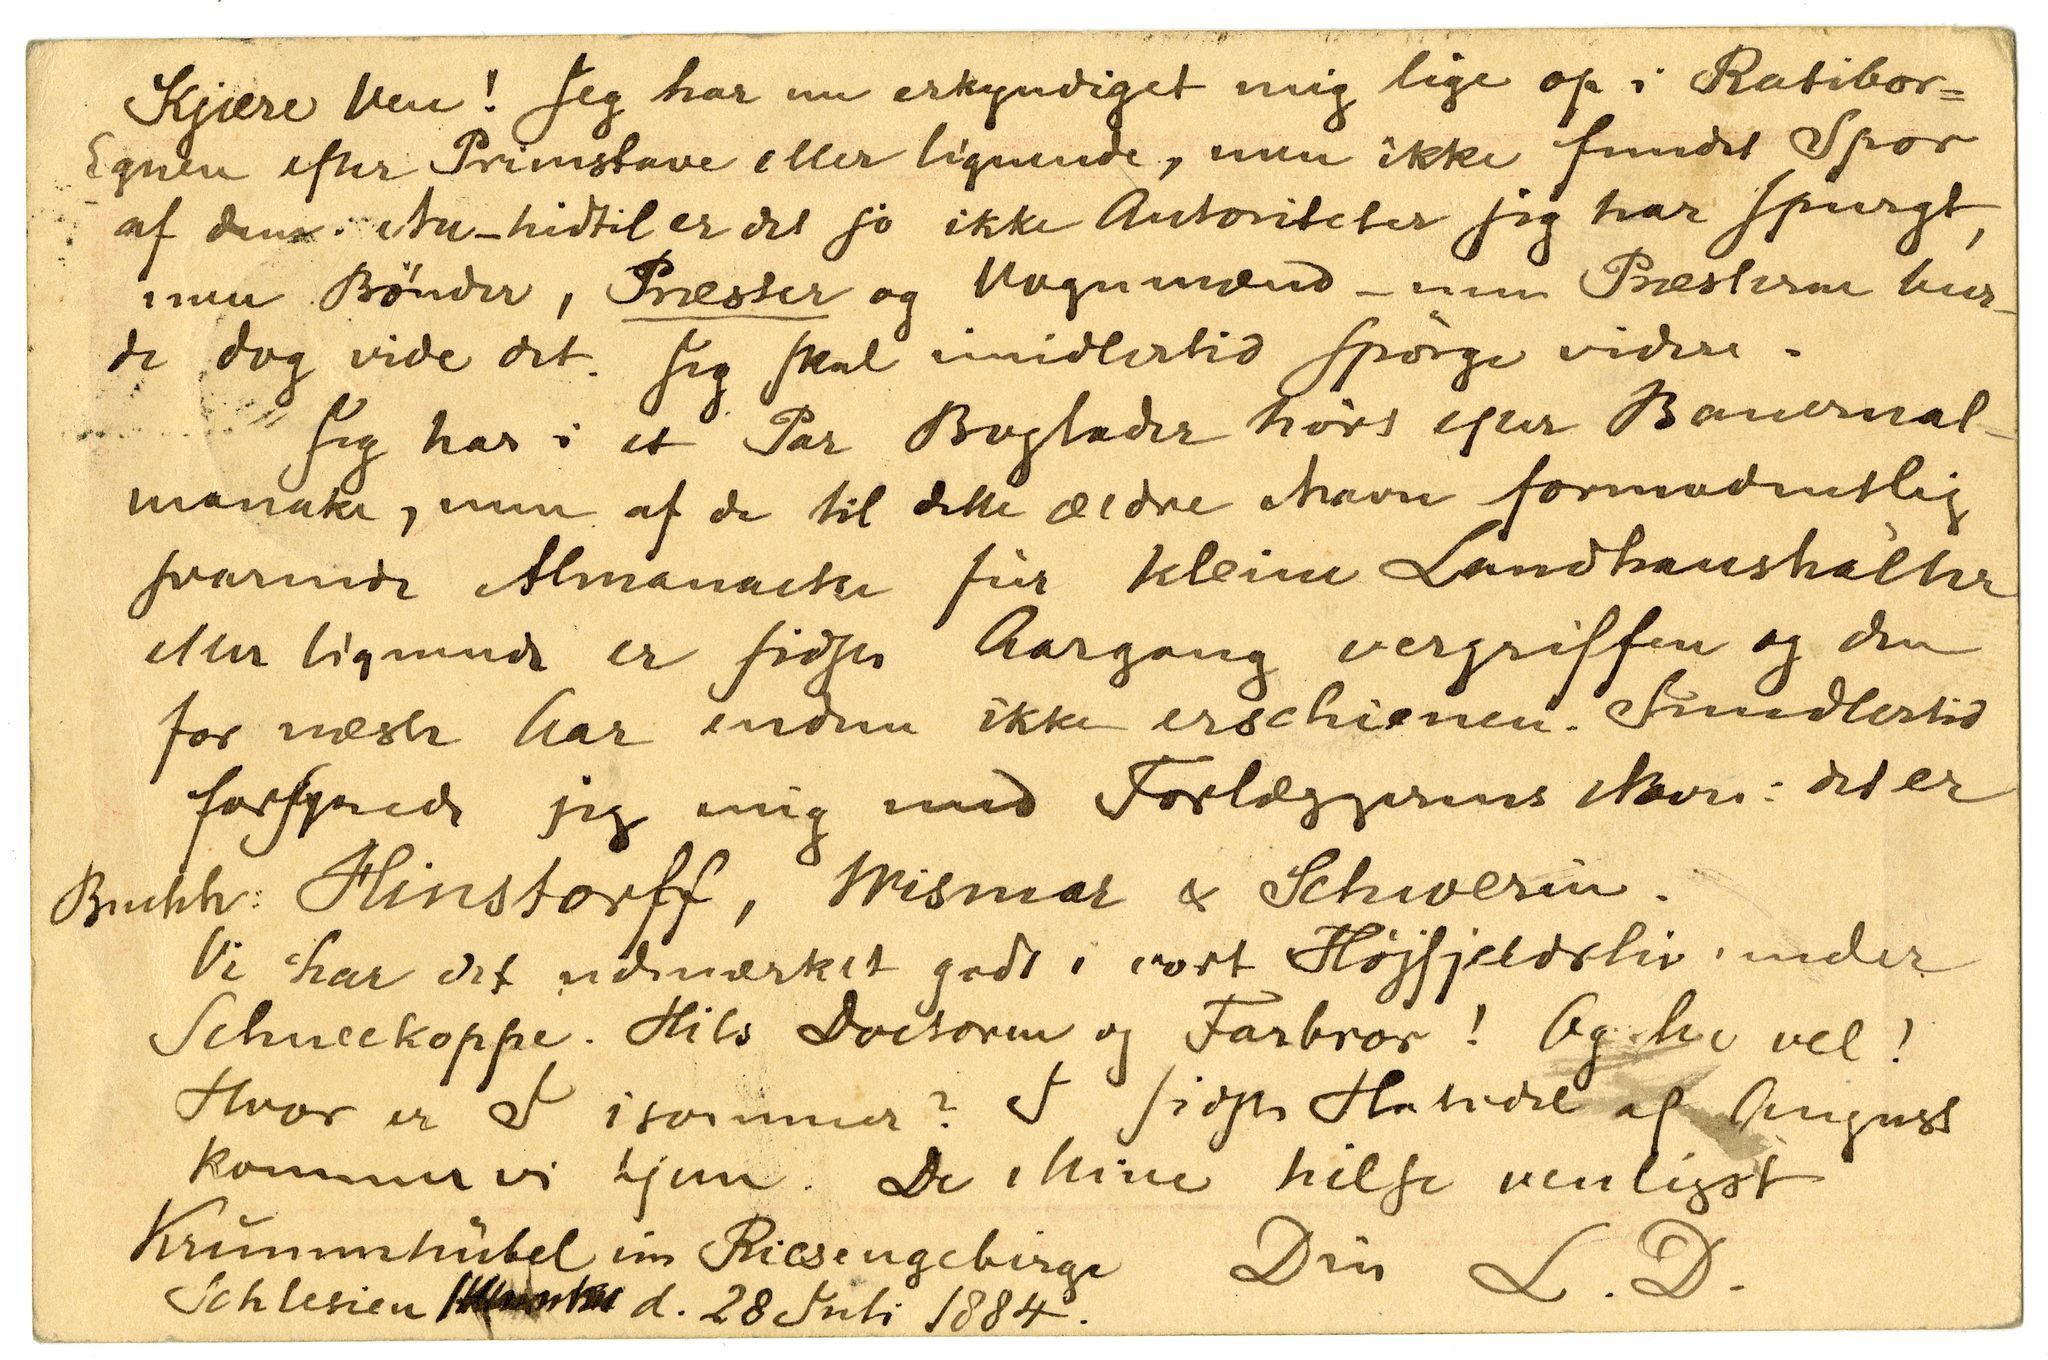 Kjære Ven! Jeg har nu erkyndiget mig lige op i Ratibor=
Egnen efter Primstave eller lignende, men ikke fundet Spor
af dem. Nu - hidtil er det jo ikke Autoriteter jeg har spurgt,
men Bønder, Præster og Vognmænd - men Præsterne bur-
de dog vide det. Jeg skal imidlertid spørge videre.
Jeg har i et Par Boglader hørt efter Bauernal-
manake, men af de til dette ældre Navn formodentlig
svarende Almanacke für kleine Landhaushälter
eller lignende er sidste Aargang vergriffen og den
for næste Aar endnu ikke erschienen. Imidlertid
forsynede jeg mig med Forlæggerens Navn: det er
Buchh: Hinstorff, Wismar & Schwerin.
Vi har det udmærket godt i vort Højfjeldsliv under
Schneekoppe. Hils Doctoren og Farbror! Og lev vel!
Hvor er I isommer? I sidste Halvdel af August
kommer vi hjem. De Mine hilse venligst
Krummhübel im Riesengebirge Din L. D.
Schlesien d. 28 Juli 1884.